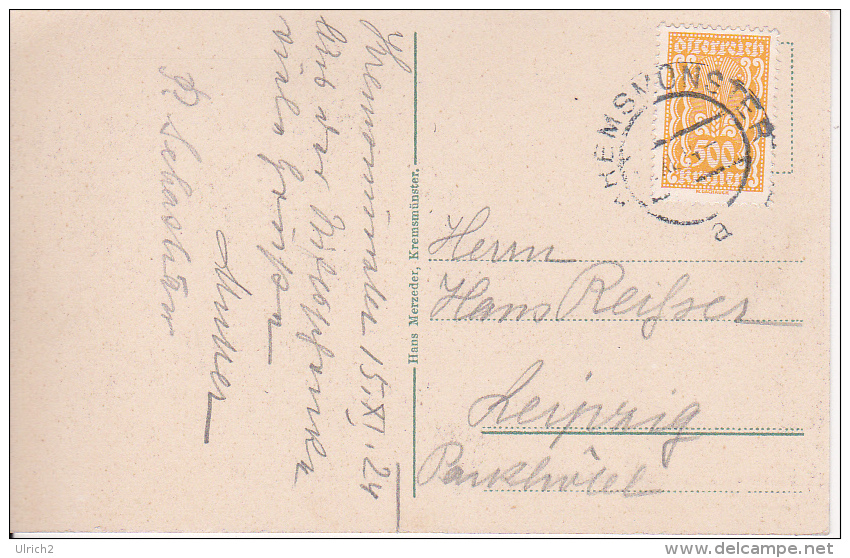 Kremsmünster 15.XI.24
Aus der
viele Grüße
P. Sebastian
Hans Merzeder, Kremsmünster.
österreich
500
Kronen
KREMSMÜNSTER
a
Herrn
Hans Reisser
Leipzig
Parkhôtel
Ulrich2
www.delcampe.net